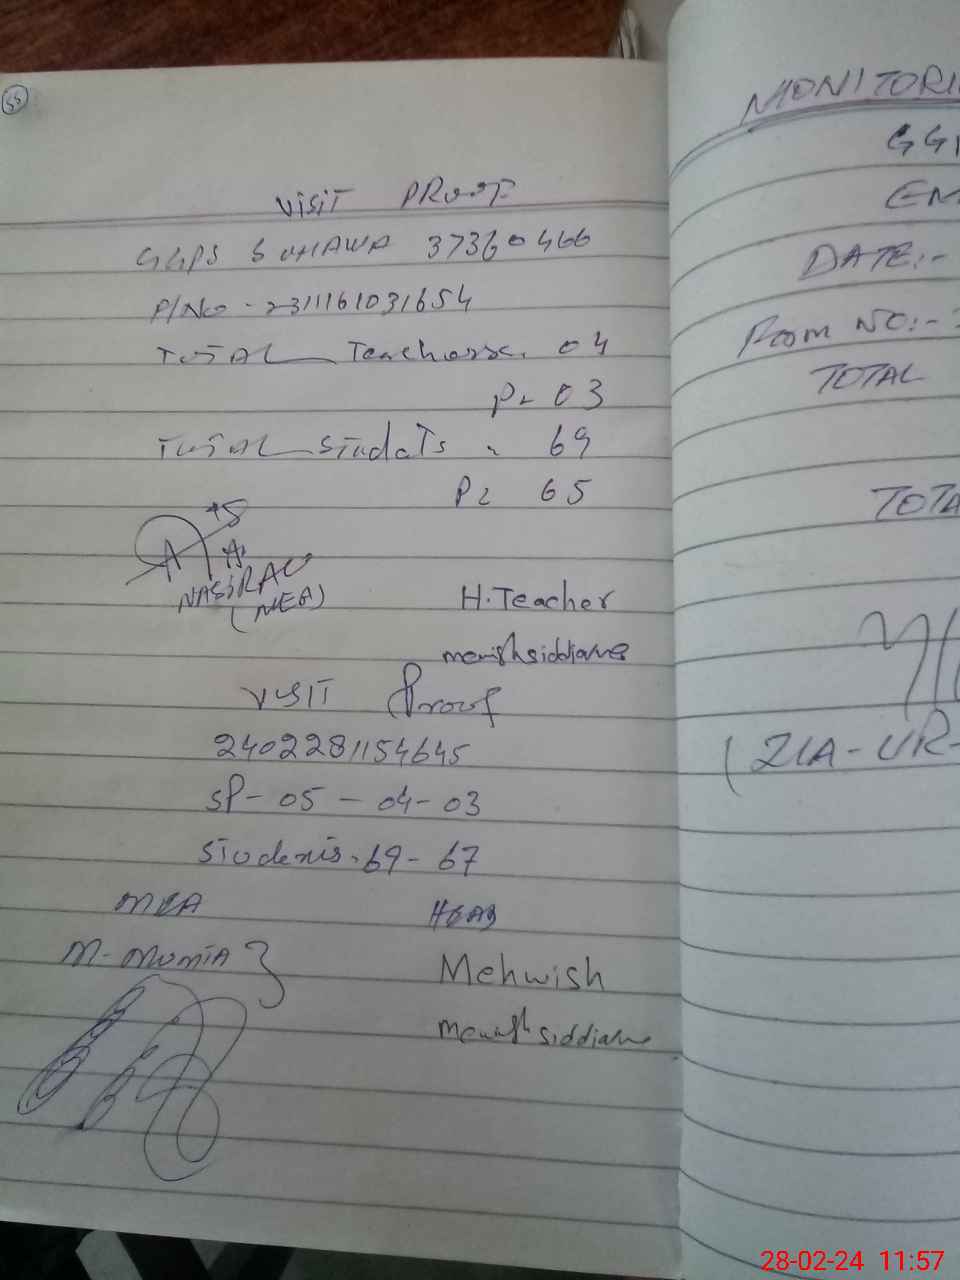 55
VISIT PROOF
GGPS SOHAWA 37360466
P/No - 2311161031654
TOTAL Teachers. 04
P- 03
TOTAL Studats - 69
P2 65
NASIR
(MEA)
H.Teacher
VISIT Proof
2402281154645
SP-05-04-03
Students. 69-67
MEA HEAD
M-Mumta
Mehwish
MONITORI
GGP
EM
DATE:-
Room NO:-
TOTAL
TOTA
(ZIA-UR-
28-02-24 11:57